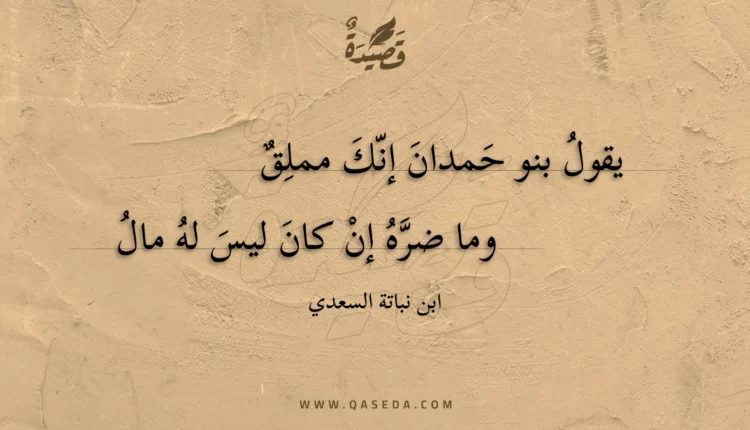 قَصِيدَةٌ
يقولُ بنو حَمدانَ إنّكَ مملِقٌ
وما ضرَّهُ إنْ كانَ ليسَ لهُ مالُ
ابن نباتة السعدي
WWW.QASEDA.COM